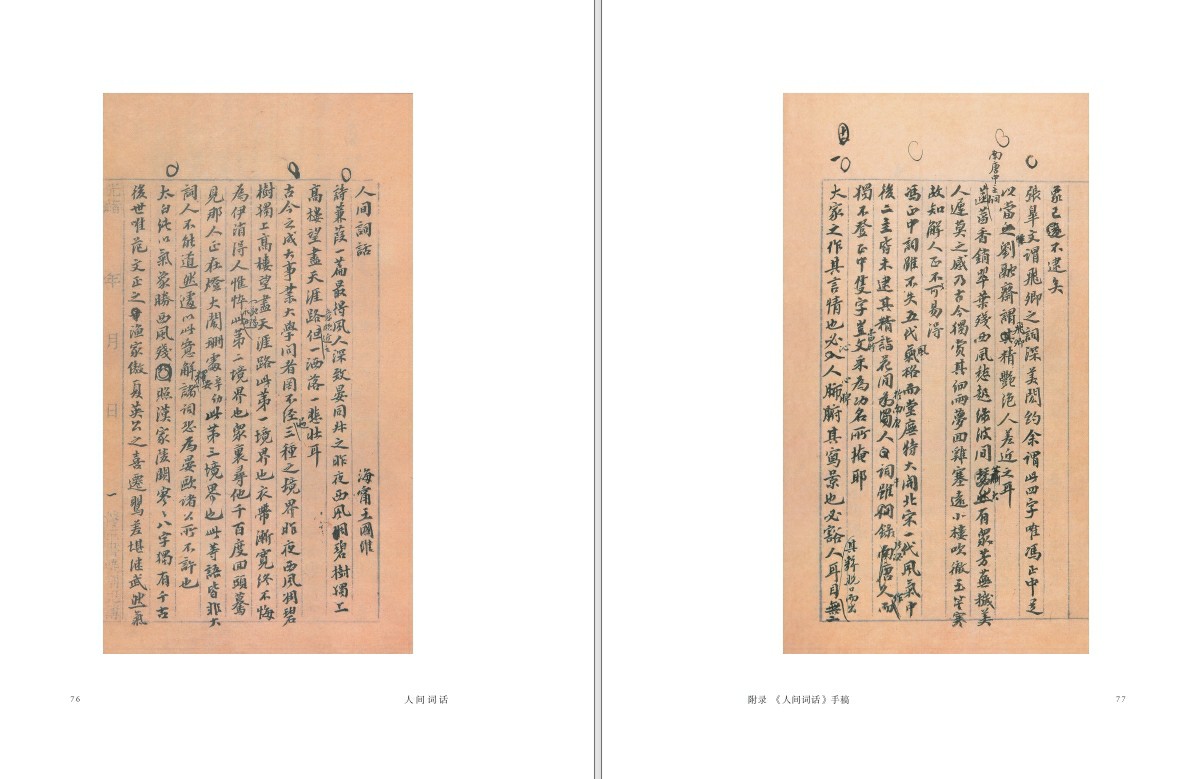 人间詞話
海甯王國維
詩蒹葭一篇最得風人深致晏同叔之昨夜西風凋碧樹獨上
高樓望盡天涯路意頗近之但一洒落一悲壯耳
古今之成大事業大學問者罔不經三種之境界昨夜西風凋碧
樹獨上高樓望盡天涯路此第一境界也衣帶漸寬終不悔
為伊消得人憔悴此第二境界也眾裏尋他千百度回頭驀
見那人正在燈火闌珊處此第三境界也此等語皆非大
詞人不能道然遽以此意解諸詞恐為晏歐諸公所不許也
太白純以氣象勝西風殘照漢家陵闕寥寥八字獨有千古
後世唯范文正之漁家傲夏英公之喜遷鶯差堪繼武然氣
光緒 年 月 日
一
76
人间词话
象已不逮矣
張皐文謂飛卿之詞深美閎約余謂此四字唯馮正中足
以當之劉融齋謂飛卿精艷絕人差近之耳
南唐中主詞
菡萏香銷翠葉殘西風愁起綠波間大有眾芳蕪穢美
人遲莫之感乃古今獨賞其細雨夢回雞塞遠小樓吹徹玉笙寒
故知解人正不可易得
馮正中詞雖不失五代風格而堂廡特大開北宋一代風氣中
後二主皆未逮其精詣花間於南唐人詞中雖錄
獨不登正中隻字豈文采為功名所掩耶
大家之作其言情也必沁人心脾其寫景也必豁人耳目其辭脫口而出
附录 《人间词话》手稿
77